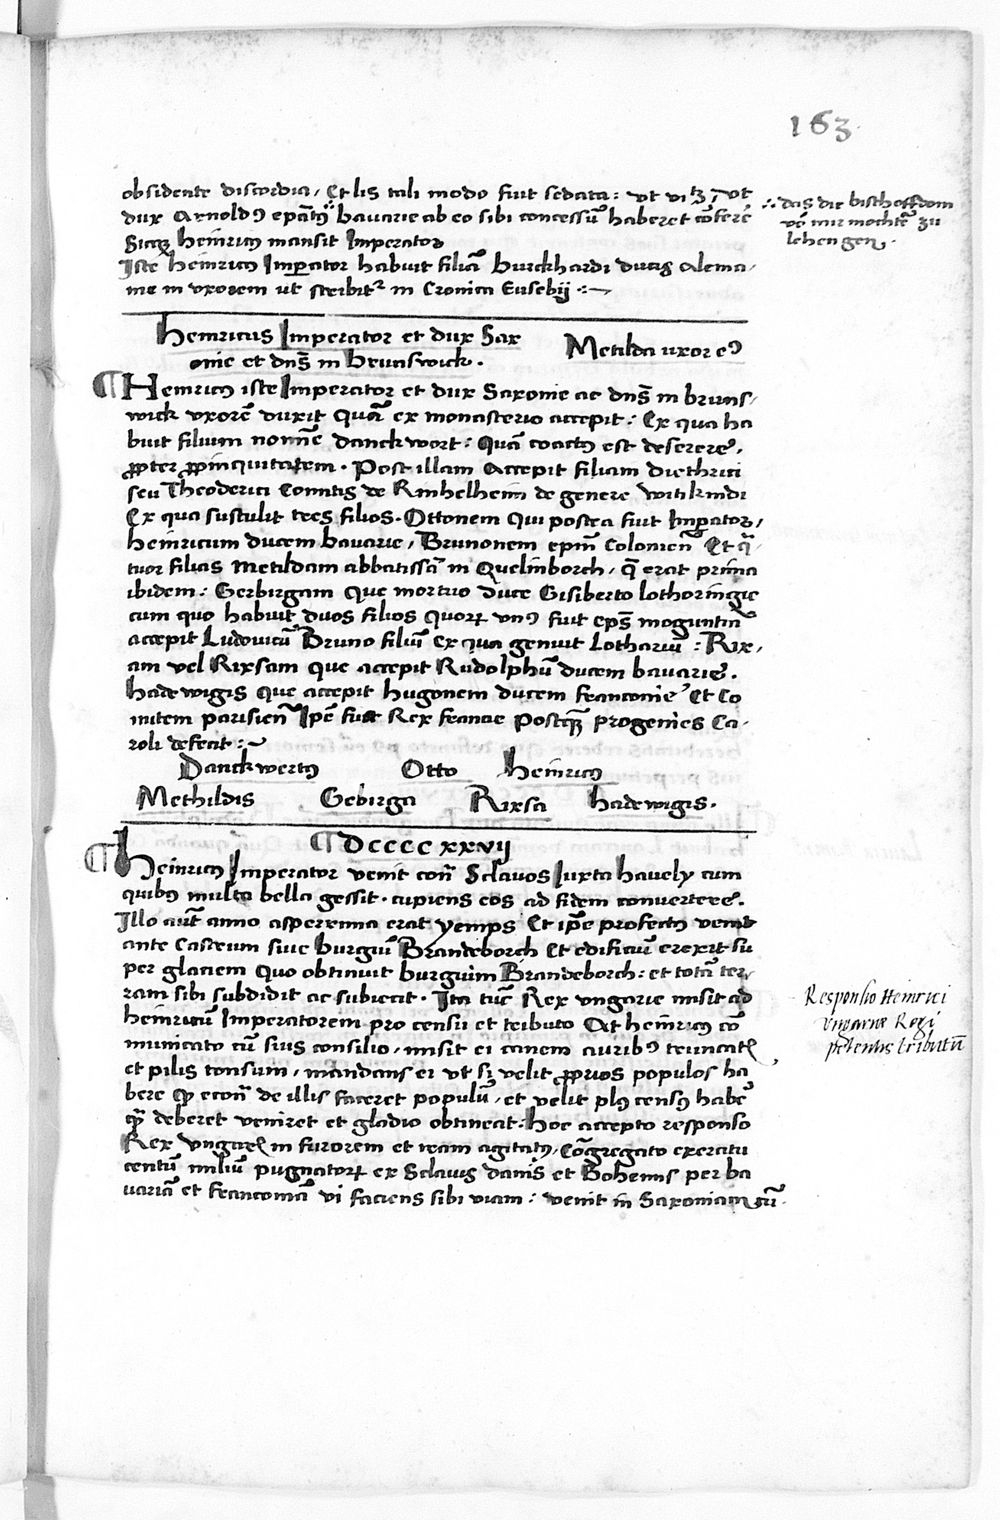 163
obsidente discordia, Et lis tali modo fuit sedata: vt vitz, vt
dux Arnoldꝰ epatꝰ bavarie ab eo sibi concessũ haberet cõferre
Sicqꝫ heinricꝰ mansit Imperator
Iste heinricꝰ Imperator habuit filiã burckhardi ducis Alema,
nie in vxorem vt scribitr in Cronica Eusebij
das die bischoffdom
võ mir mochtē zu
lehen gen
heinricus Imperator et dux Sax
onie et dns̃ in brunswick.
Metilda uxor eꝰ
¶ Heinricꝰ iste Imperator et dux Saxonie ac dns̃ in bruns,
wick vxorẽ duxit Quã ex monasterio accepit: Ex qua ha
buit filium nomĩe danckwort: Quã coactꝰ est deserere,
ꝓpter ꝓpinquitatem. Post illam Accepit filiam diethrici
seu Theoderici Comitis de Rinhelheim de genere witikindi
Ex qua sustulit tres filios. Ottonem Qui postea fuit Imperator,
heinricum ducem bavarie, Brunonem epm̃ Colonien̄ Et q̃,
tuor filias Metildam abbatissã in Quelinborch, q̃ erat prima
ibidem: Gerbirgam Que mortuo duce Gisiberto lothoringie
cum quo habuit duos filios quorꝝ vnꝰ fuit eps̃ moguntin̄
accepit Ludovicũ Bruno filiũ ex qua genuit Lothariũ: Rix,
am vel Rixsam que accepit Rudolphũ ducem bavarie.
hadewigis que accepit hugonem ducem franconie Et Co
mitem parisien̄ Ip̃e fuit Rex francie Postqꝫ progenies Ca
roli defecit:
Danckwertꝰ Otto heinricꝰ
Methildis Gebirga Rixsa hadewigis.
¶ DCCCCxxvij
¶ heinricꝰ Imperator venit con̄ Sclavos Iuxta havely cum
quibꝰ multa bella gessit. cupiens eos ad fidem convertere.
Illo aut̃ anno asperrima erat yemps Et ip̃e profectꝰ venit
ante Castrum sive burgiũ Brandeborch Et edificiũ erexit su
per glaciem Quo obtinuit burguim Brandeborch: et totã ter,
ram sibi subdidit ac subiecit. Ita tũc Rex vngarie misit ad
heinricũ Imperatorem pro censu et tributo At heinricꝰ cõ
municato cũ suis consilio, misit ei canem auribꝰ truncatꝭ
et pilis tonsum, mandans ei vt si velit ꝓprios populos ha
bere qꝫ econ̄ de illis faceret populũ, et velit plꝰ censꝰ habẽ
qꝫ deberet veniret et gladio obtineat. hoc accepto responso
Rex vngarꝭ in furorem et iram agitatꝰ, Cõgregato exercitu
centũ miliũ pugnatorꝝ ex Sclavis danis et Bohemis per ba
variã et franconiã vi faciens sibi viam: venit in Saxoniam cũ
Responsio Heinrici
Vngariae Regi
petentis tributũ